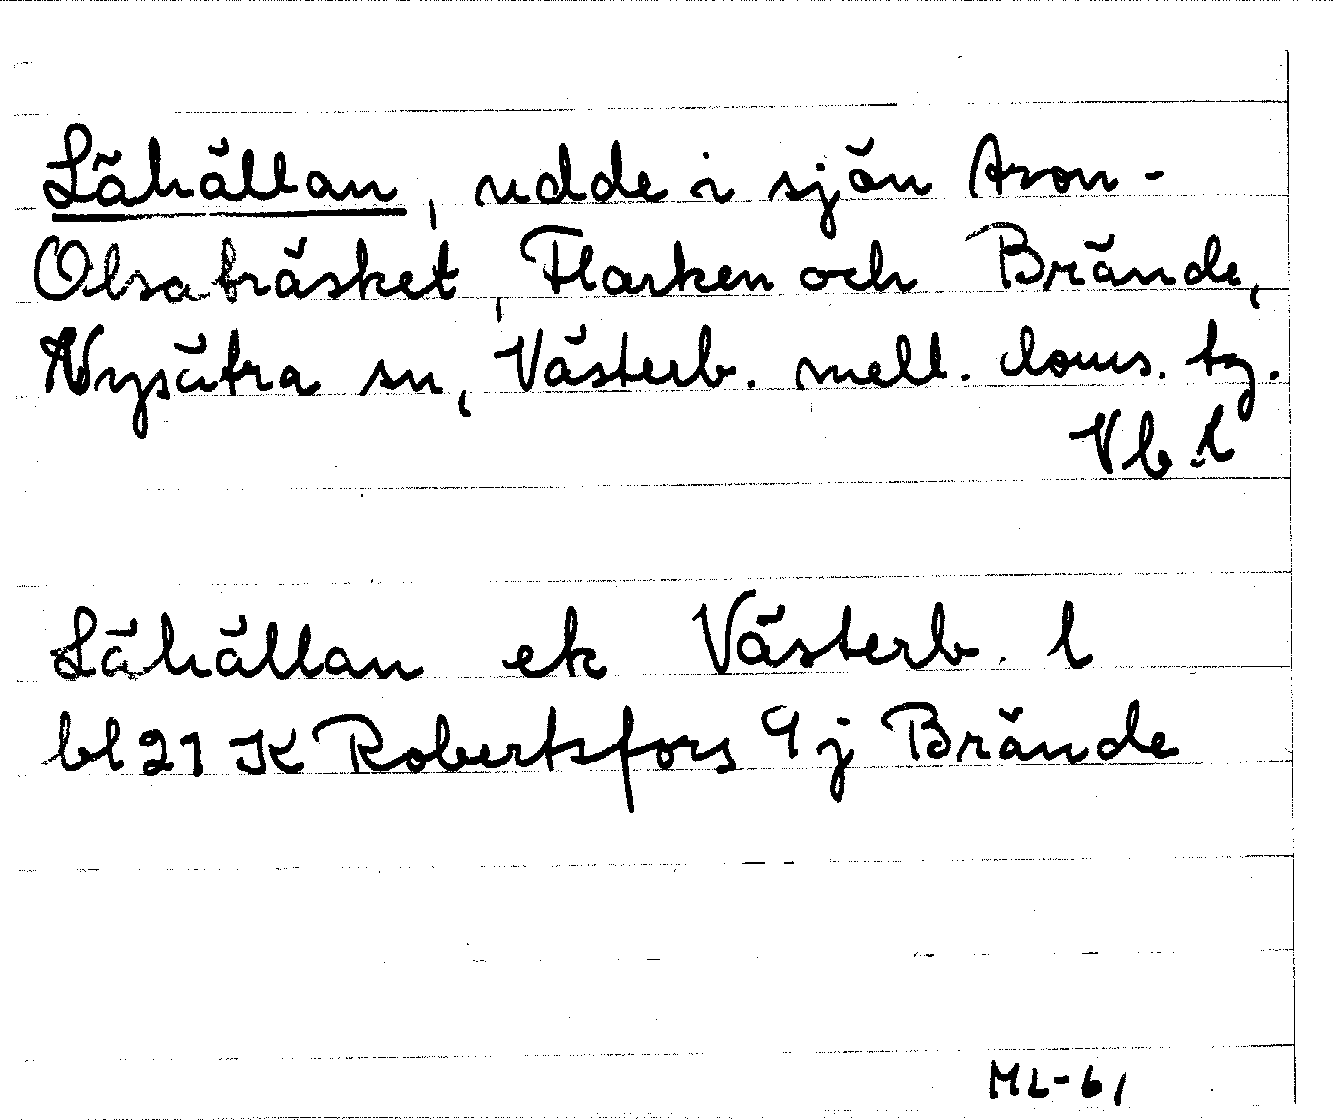 Lähällan, udde i sjön Aron-
Olsaträsket, Flarken och Brände,
Nysätra sn, Västerb. mell. doms. tg.
Vb. l
Lähällan ek Västerb. l
bl 21 K Robertsfors 9j Brände
ML-61